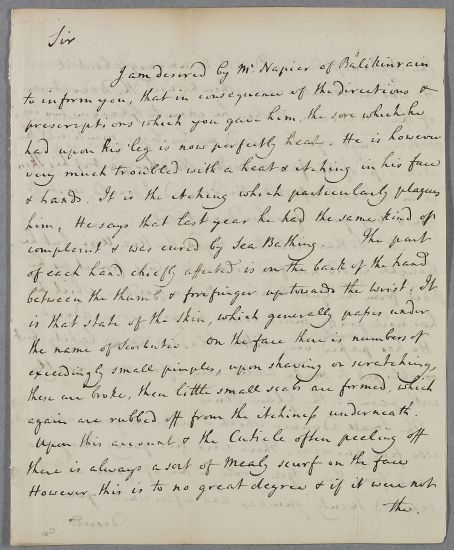 Sir
I am desired by Mr. Napier of Balikinrain
to inform you, that in consequence of the directions &
prescriptions which you gave him, the sore which he
had upon his leg is now perfectly heal. He is however
very much troubled with a heat & itching in his face
& hands. It is the itching which particularly plagues
him; He says that last year he had the same kind of
complaint & was cured by Sea Bathing. The part
of each hand chiefly affected is on the back of the hand
between the thumb & forefinger up towards the wrist. It
is that state of the skin, which generally passes under
the name of Scorbutic. On the face there is numbers of
exceedingly small pimples, upon shaving or scratching,
these are broke, then little small scabs are formed, which
again are rubbed off from the Itchiness underneath.
Upon this account & the Cuticle often peeling off
there is always a sort of Mealy scurf on the face
However this is to no great degree & if it were not
the